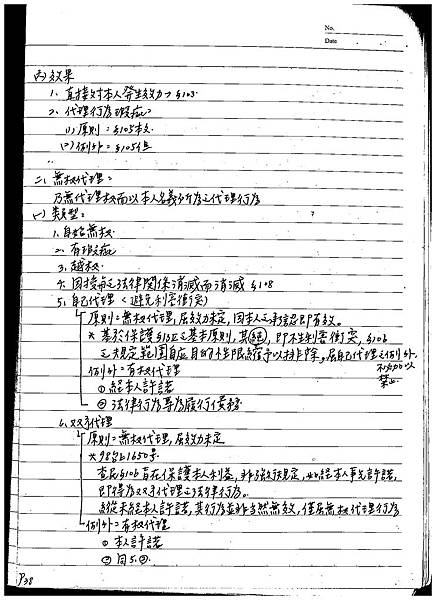 No.
Date
(四)效果
1、直接對本人發生效力→§103.
2、代理行為瑕疵：
(1)原則：§105本文
(2)例外：§105但
二、無權代理：
乃無代理權而以本人名義所為之代理行為
(一)類型：
1、自始無權
2、有瑕疵
3、越權
4、因授與之法律關係消滅而消滅 §108
5、自己代理（避免利害衝突）
原則：無權代理，屬效力未定，因本人之承認即有效。
* 基於保護 之基本原則，其 即不生利害衝突，§106
之規定範圍自應目的性限縮予以排除。屬自己代理之例外，
不加以
禁止。
例外：有權代理
①經本人許諾
②法律行為專為履行債務
6、雙方代理
原則：無權代理，屬效力未定
*98台上1650号
查民§106旨在保護本人利益，非強行規定，如經本人事先許諾，
即得為雙方代理之法律行為。
縱從未經本人許諾，其行為並非當然無效，僅屬無權代理行為
例外：有權代理
①本人許諾
②同5.②.
P38